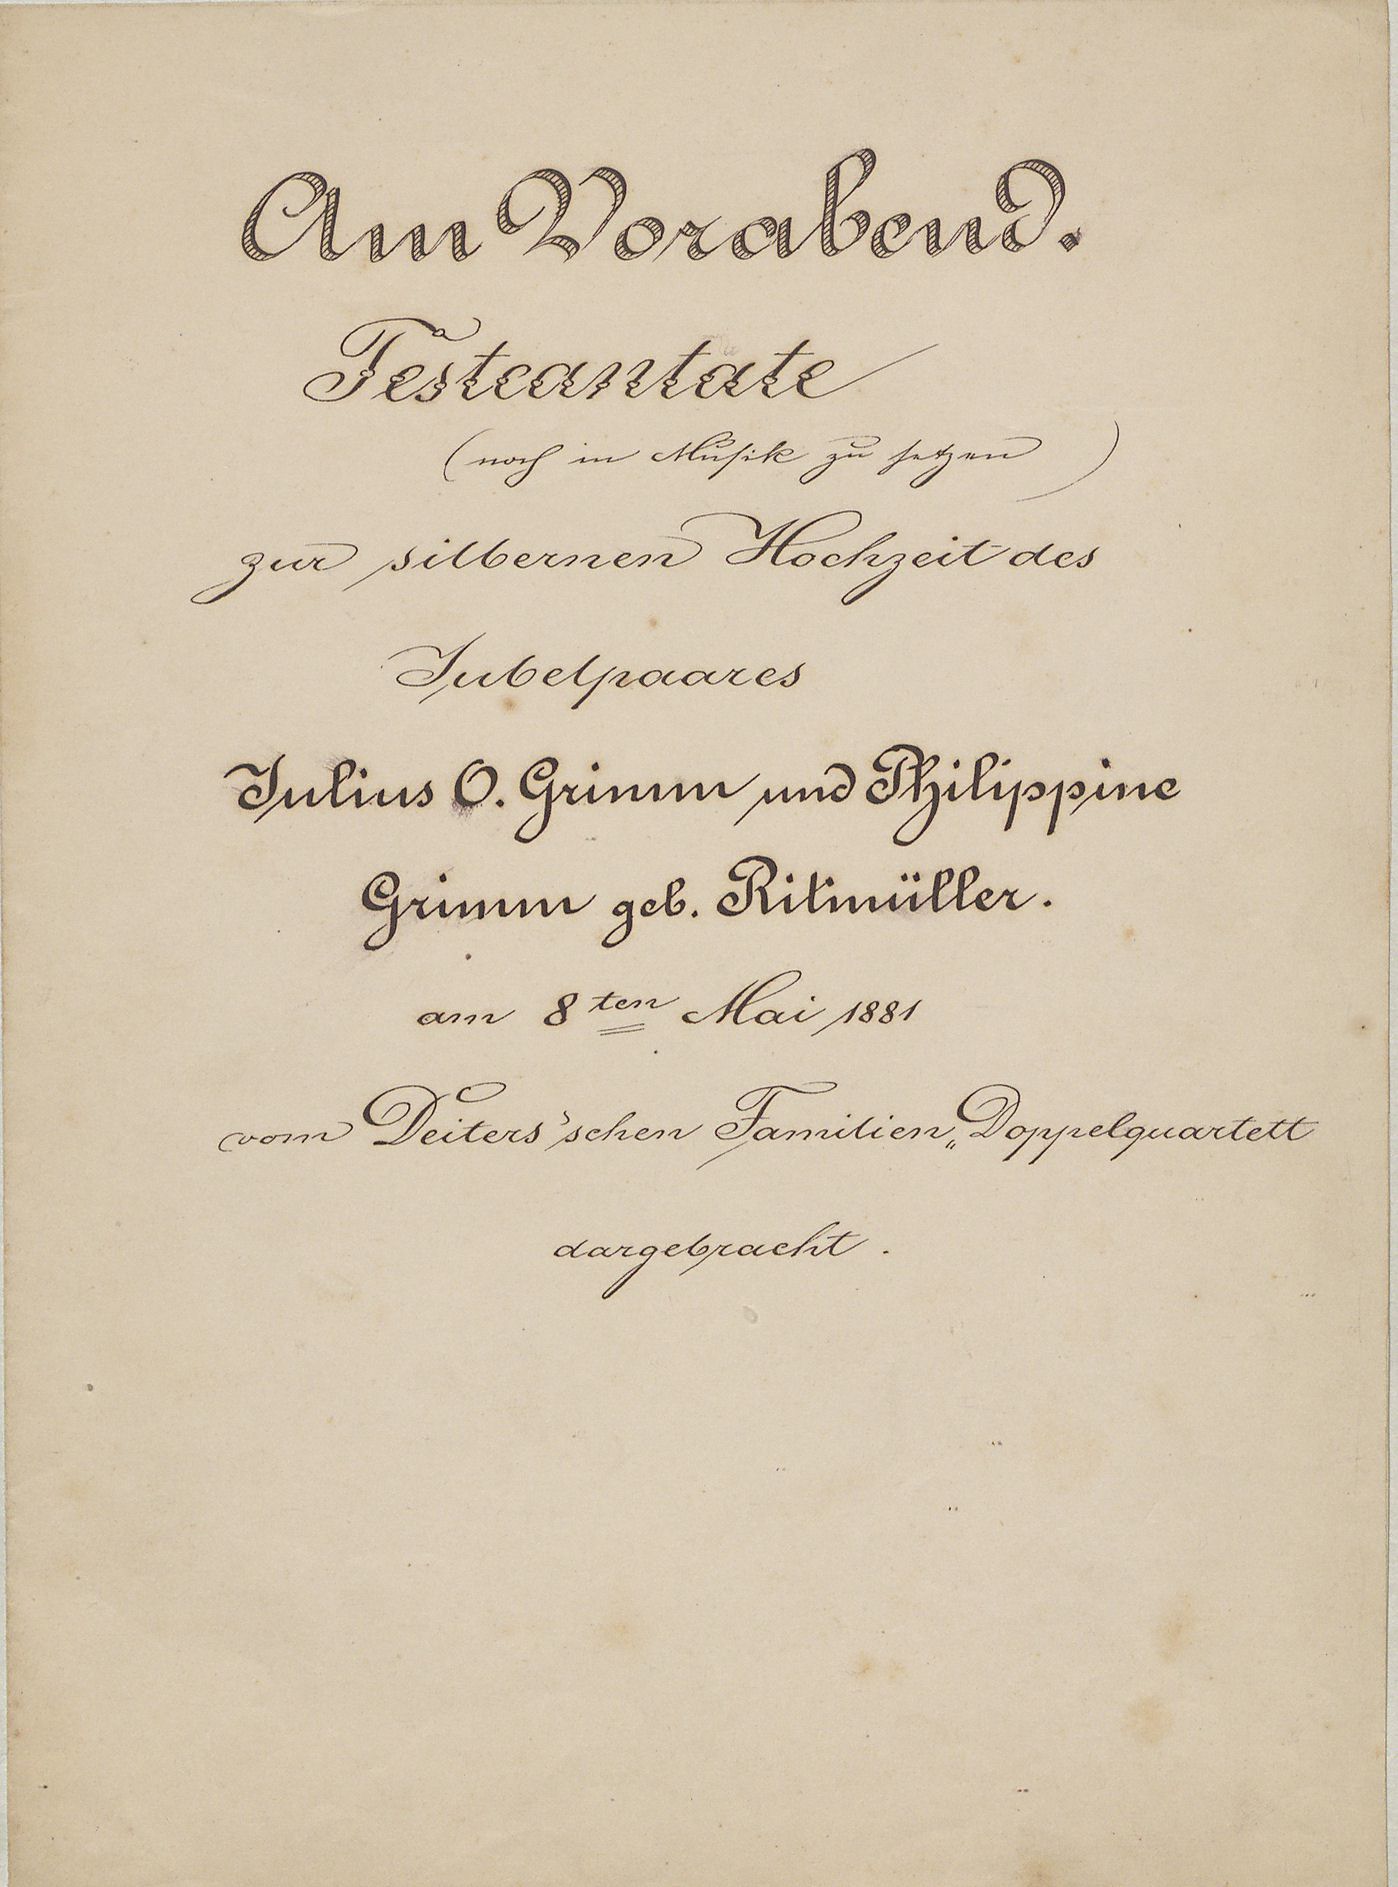 Am Vorabend.
Festcantate
(noch in Musik zu setzen)
zur silbernen Hochzeit des
Jubelpaares
Julius O. Grimm und Philippine
Grimm geb. Ritmüller.
am 8ten Mai 1881
vom Deiters'schen Familien„Doppelquartett
dargebracht.